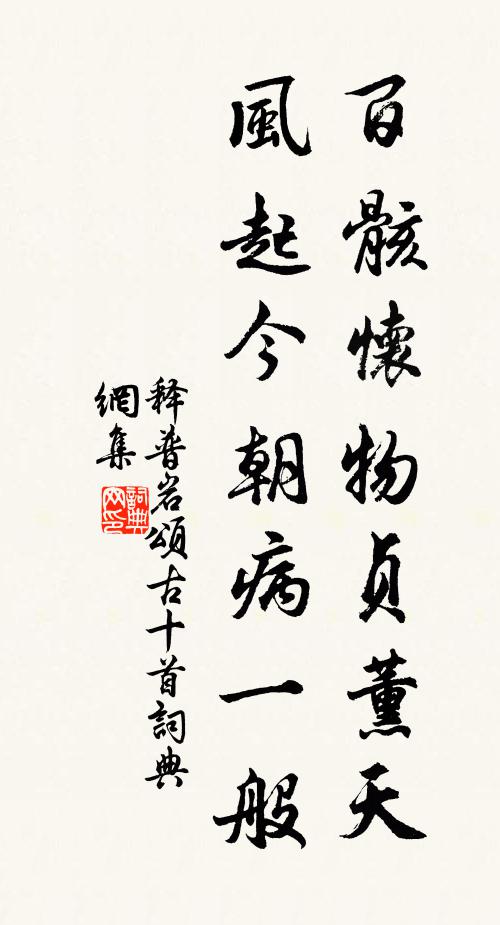 百骸懷物貞薰天
風起今朝病一般
释普岩頌古十首詞典
網集
詞典網印